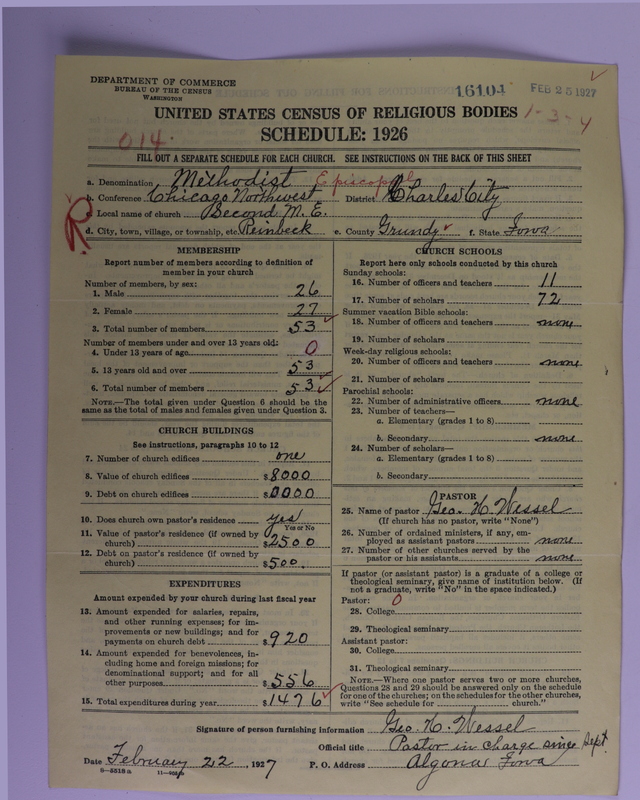 DEPARTMENT OF COMMERCE
BUREAU OF THE CENSUS
WASHINGTON
16104
FEB 25 1927
UNITED STATES CENSUS OF RELIGIOUS BODIES
1-3-4
SCHEDULE: 1926
014
FILL OUT A SEPARATE SCHEDULE FOR EACH CHURCH. SEE INSTRUCTIONS ON THE BACK OF THIS SHEET
a. Denomination Methodist Episcopal
b. Conference Chicago Northwest District Charles City
c. Local name of church Second M. E.
d. City, town, village, or township, etc. Reinbeck e. County Grundy f. State Iowa
R
MEMBERSHIP
Report number of members according to definition of member in your church
Number of members, by sex:
1. Male 26
2. Female 27
3. Total number of members 53
Number of members under and over 13 years old:
4. Under 13 years of age 0
5. 13 years old and over 53
6. Total number of members 53
NOTE.—The total given under Question 6 should be the
same as the total of males and females given under Question 3.
CHURCH BUILDINGS
See instructions, paragraphs 10 to 12
7. Number of church edifices one
8. Value of church edifices $8000
9. Debt on church edifices $0000
10. Does church own pastor's residence yes
Yes or No
11. Value of pastor's residence (if owned by
church) $2500
12. Debt on pastor's residence (if owned by
church) $500.
EXPENDITURES
Amount expended by your church during last fiscal year
13. Amount expended for salaries, repairs,
and other running expenses; for im-
provements or new buildings; and for
payments on church debt $920
14. Amount expended for benevolences, in-
cluding home and foreign missions; for
denominational support; and for all
other purposes $556
15. Total expenditures during year $1476
CHURCH SCHOOLS
Report here only schools conducted by this church
Sunday schools:
16. Number of officers and teachers 11
17. Number of scholars 72
Summer vacation Bible schools:
18. Number of officers and teachers none
19. Number of scholars
Week-day religious schools:
20. Number of officers and teachers none
21. Number of scholars
Parochial schools:
22. Number of administrative officers none
23. Number of teachers—
a. Elementary (grades 1 to 8)
b. Secondary none
24. Number of scholars—
a. Elementary (grades 1 to 8)
b. Secondary
PASTOR
25. Name of pastor Geo. H. Wessel
(If church has no pastor, write "None")
26. Number of ordained ministers, if any, em-
ployed as assistant pastors none
27. Number of other churches served by the
pastor or his assistants none
If pastor (or assistant pastor) is a graduate of a college or
theological seminary, give name of institution below. (If
not a graduate, write "No" in the space indicated.)
Pastor: 0
28. College
29. Theological seminary
Assistant pastor:
30. College
31. Theological seminary
NOTE.—Where one pastor serves two or more churches,
Questions 28 and 29 should be answered only on the schedule
for one of the churches; on the schedules for the other churches,
write "See schedule for church."
Signature of person furnishing information Geo. H. Wessel
Official title Pastor in charge since Sept.
Date February 22, 1927 P. O. Address Algona Iowa